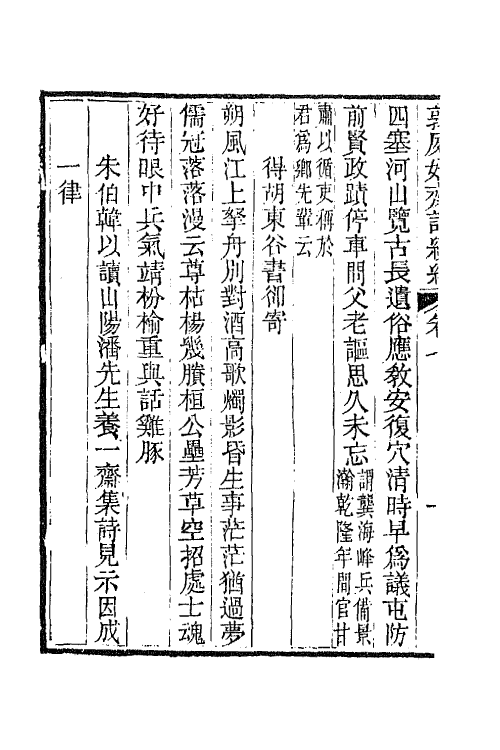 敦夙好齋詩續編卷一
一
四塞河山覽古長遺俗應敎安復穴清時早爲議屯防
前賢政蹟停車問父老謳思久未忘
謂龔海峰兵備景
瀚乾隆年間官甘
肅以循吏稱於
君爲鄉先輩云
得胡東谷書卻寄
朔風江上拏舟別對酒高歌燭影昏生事茫茫猶過夢
儒冠落落漫云尊枯楊幾賸桓公壘芳草空招處士魂
好待眼中兵氣靖枌榆重與話雞豚
朱伯韓以讀山陽潘先生養一齋集詩見示因成
一律